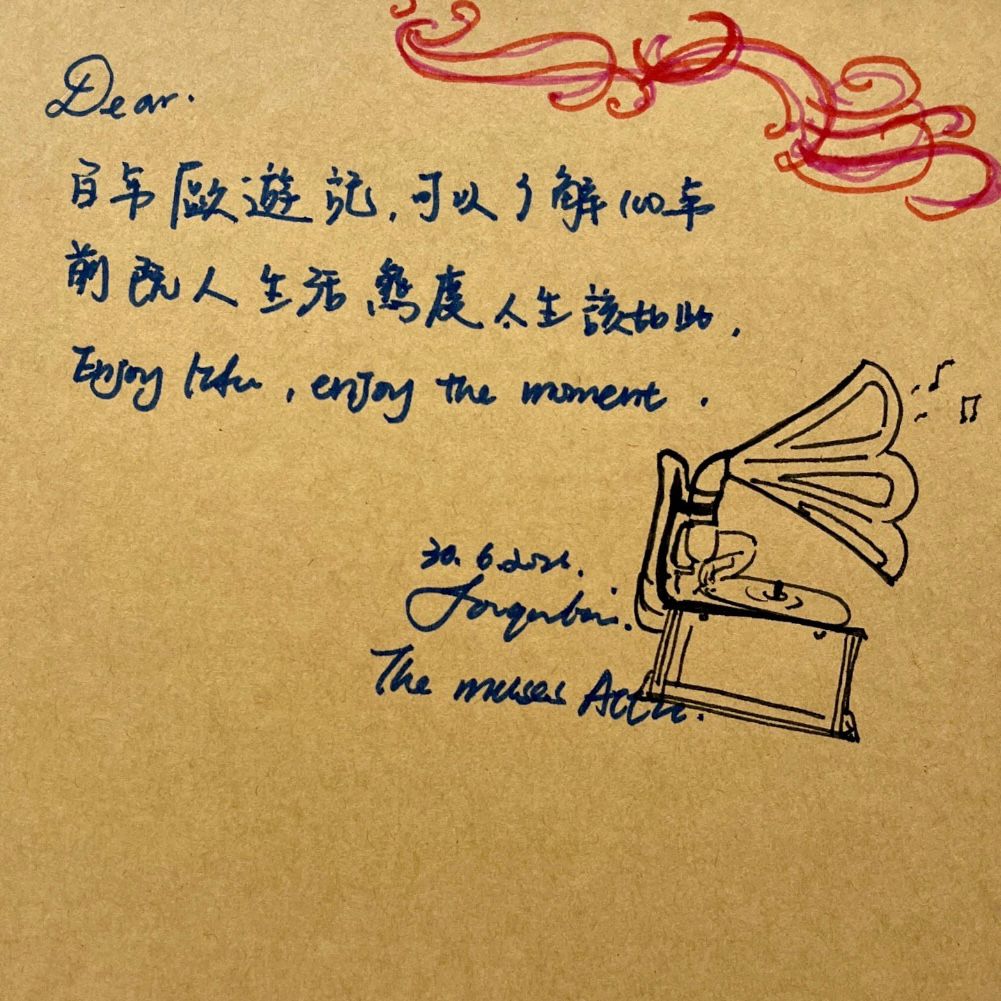 Dear.
百年歐遊記,可以了解100年
前既人生活態度,人生該如此.
Enjoy life, enjoy the moment.
30.6.2021.
The muses Attic.